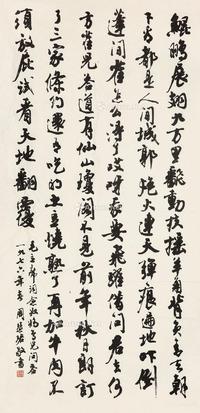 鲲鹏展翅九万里翻动扶摇羊角背负青天朝
下看都是人间城郭炮火连天弹痕遍地吓倒
蓬间雀怎么得了哎呀我要飞跃借问君去何
方雀儿答道有仙山琼阁不见前年秋月朗订
了三家条约还有吃的土豆烧熟了再加牛肉不
须放屁试看天地翻覆
毛主席词念奴娇鸟儿问答
一九七六年春周慧珺敬书